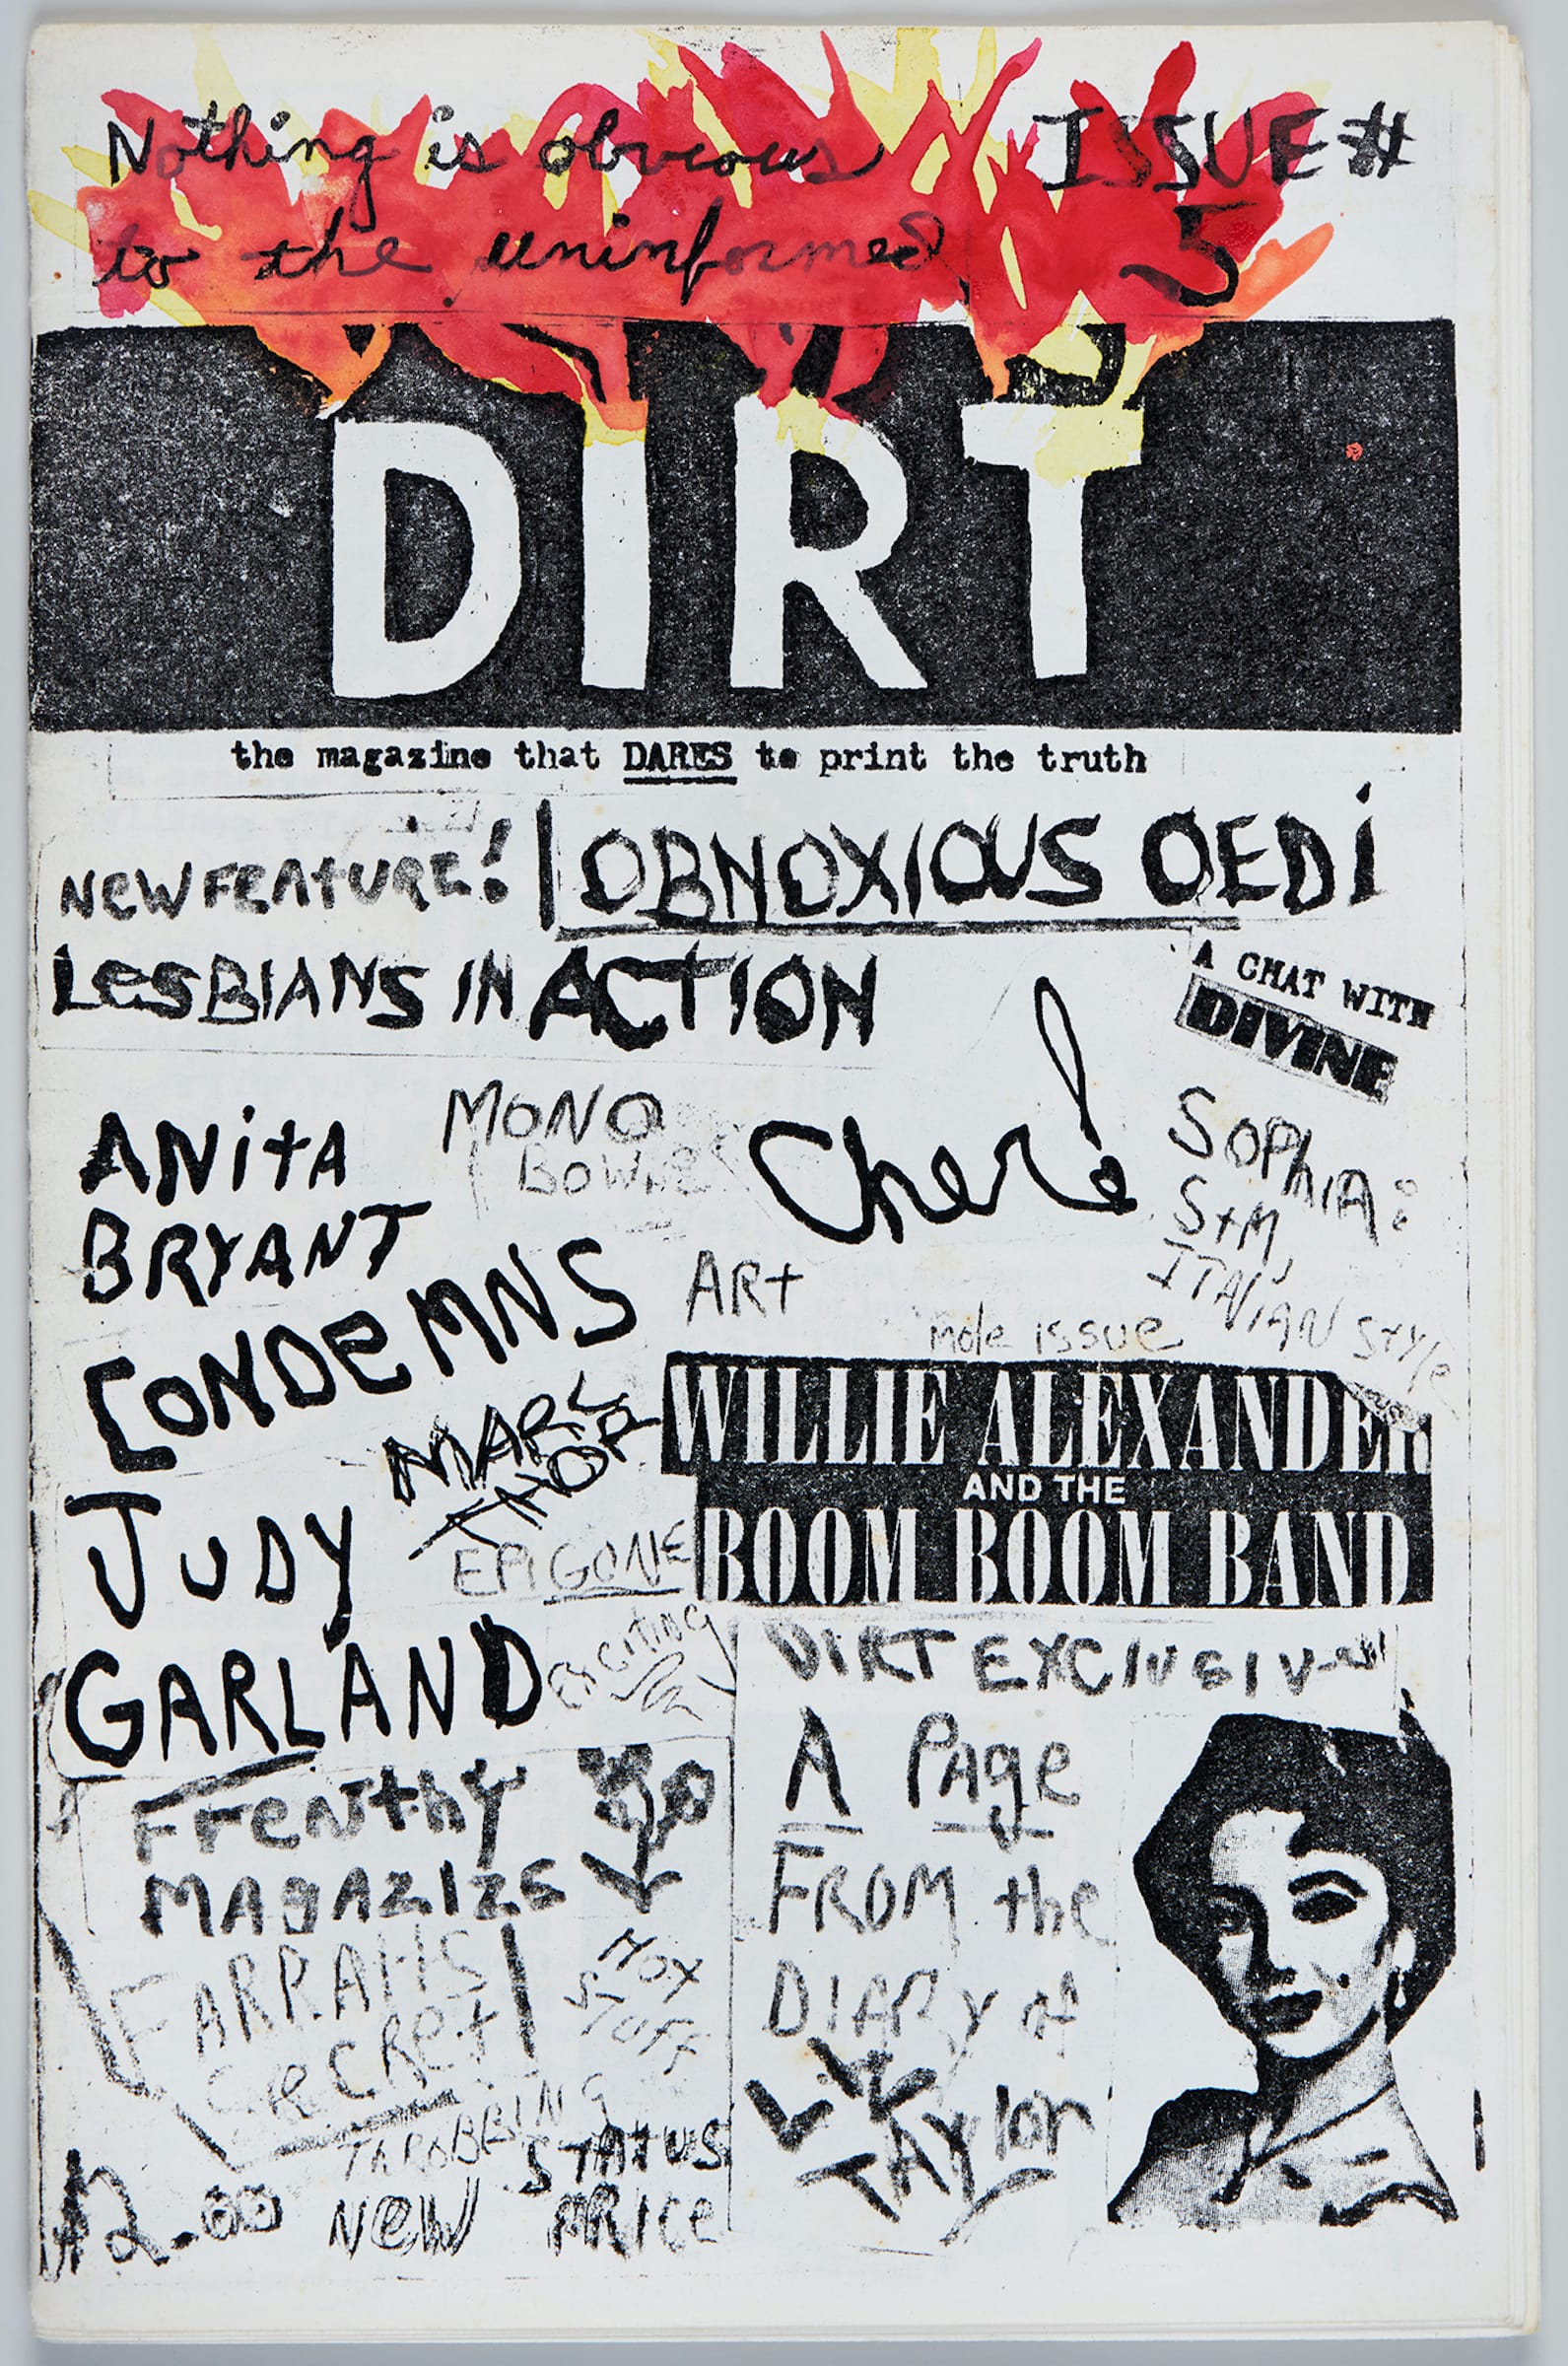 Nothing is obvious
to the uninformed
ISSUE #
5
DIRT
the magazine that DARES to print the truth
NEW FEATURE! OBNOXIOUS OEDI
LESBIANS IN ACTION
A CHAT WITH
DIVINE
ANITA
BRYANT
CONDEMNS
JUDY
GARLAND
MONO
Cher!
SOPHIA:
S+M,
ITALIAN STYLE
ART
mole issue
MARL
THOR
EPIGONE
WILLIE ALEXANDER
AND THE
BOOM BOOM BAND
exciting
DIRT EXCLUSIVE
A Page
FROM the
DIARY of
LIZ
TAYlor
FrENthY
MAGAZIZE
FARRAHS
SECRET
HOX
STUFF
THROBBING
STATUS
$2.00 NEW PRICE